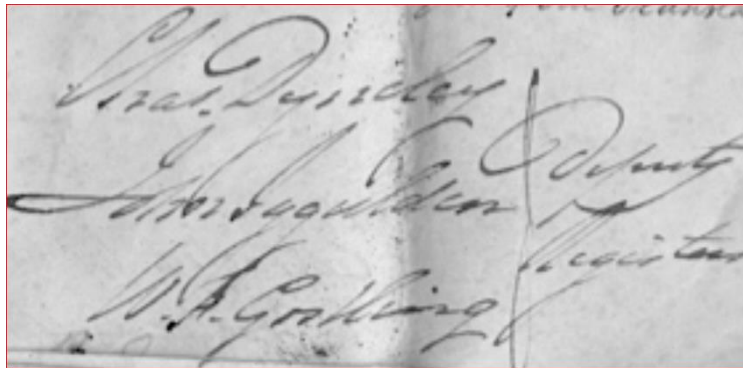 Chas. Dyneley
John Iggulden
W. F. Gostling
Deputy
Registers